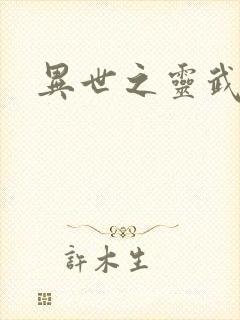 異世之靈武
許木生